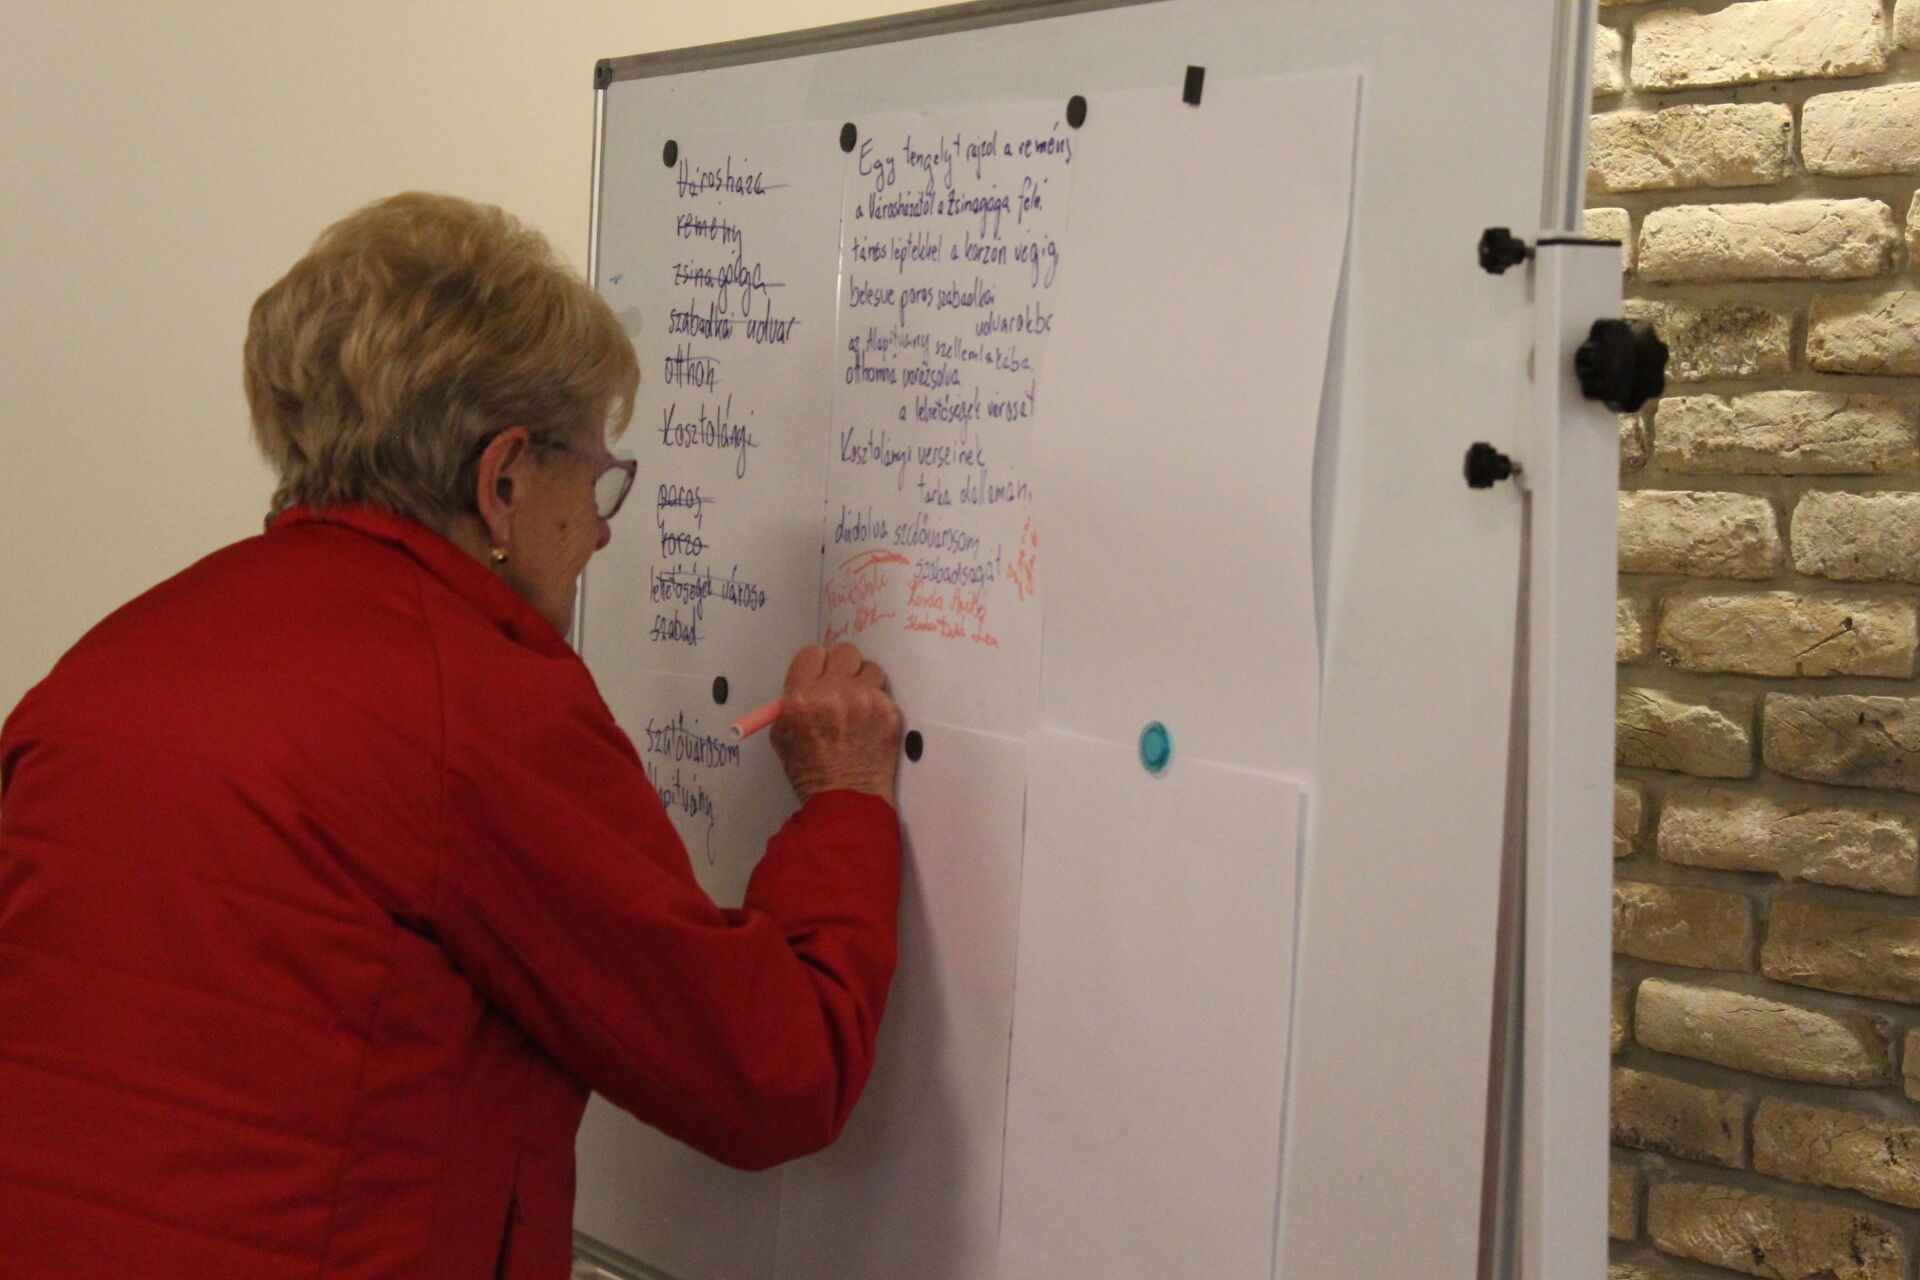 Városháza
remény
zsinagóga
szabadkai udvar
otthon
Kosztolányi
poros
korzó
lehetőségek városa
szabad
szülővárosom
Egy tengelyt rajzol a remény
a Városházától a Zsinagóga felé.
táncos léptekkel a korzón végig,
belesve poros szabadkai
udvarokba
az Alapítvány szellemlakába,
otthonná varázsolva
a lehetőségek városát
Kosztolányi verseinek
tarka dallamán,
dúdolva szülővárosom
szabadságát